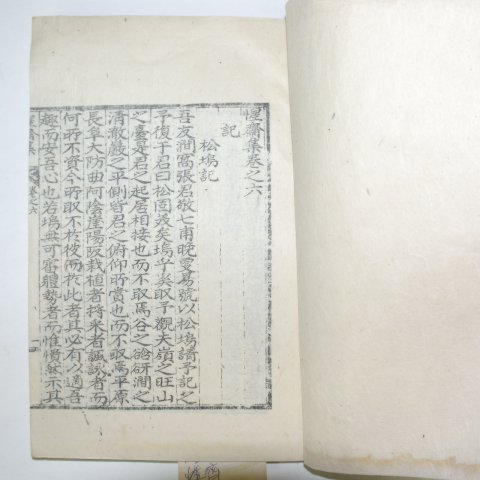 惺齋集卷之六
記
松塢記
吾友澗窩張君敬七甫晚更易號以松塢請予記之
予復于君曰松固美矣塢乎奚取予觀夫嶺之旺山
之臺是君之起居相接也而不取焉谷之谽谺澗之
清激巖之平側皆君之俯仰所賞也而不取焉平原
長阜大防曲阿陰崖陽阪栽植者持來者誠詠者而
何所不資今所取不於彼而於此者其必有以適吾
趣而安吾心也若塢無可審體勢者而惟償然示其
齋集
卷之六
一